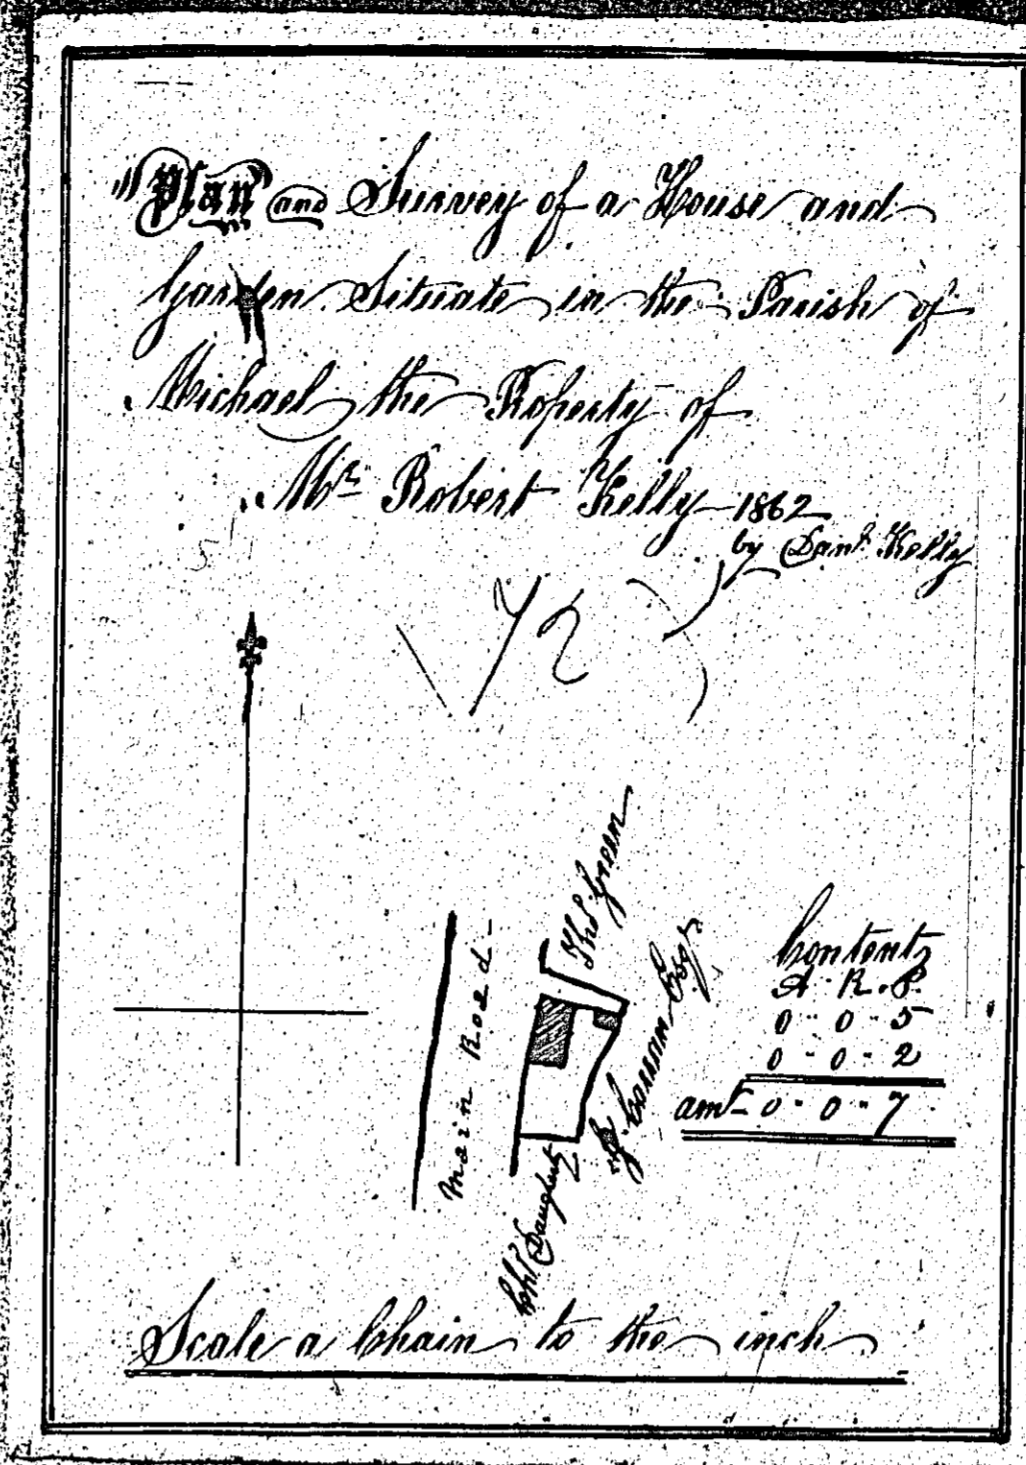 "Plan and Survey of a House and
Garden Situate in the Parish of
Michael the Property of
Mr. Robert Kelly 1862
by Danl. Kelly
Main Road
Thos. Green
Esqr.
Contents
A. R. P.
0 " 0 - 5
0 - 0 - 2
amt - 0 - 0 - 7
Scale a Chain to the inch